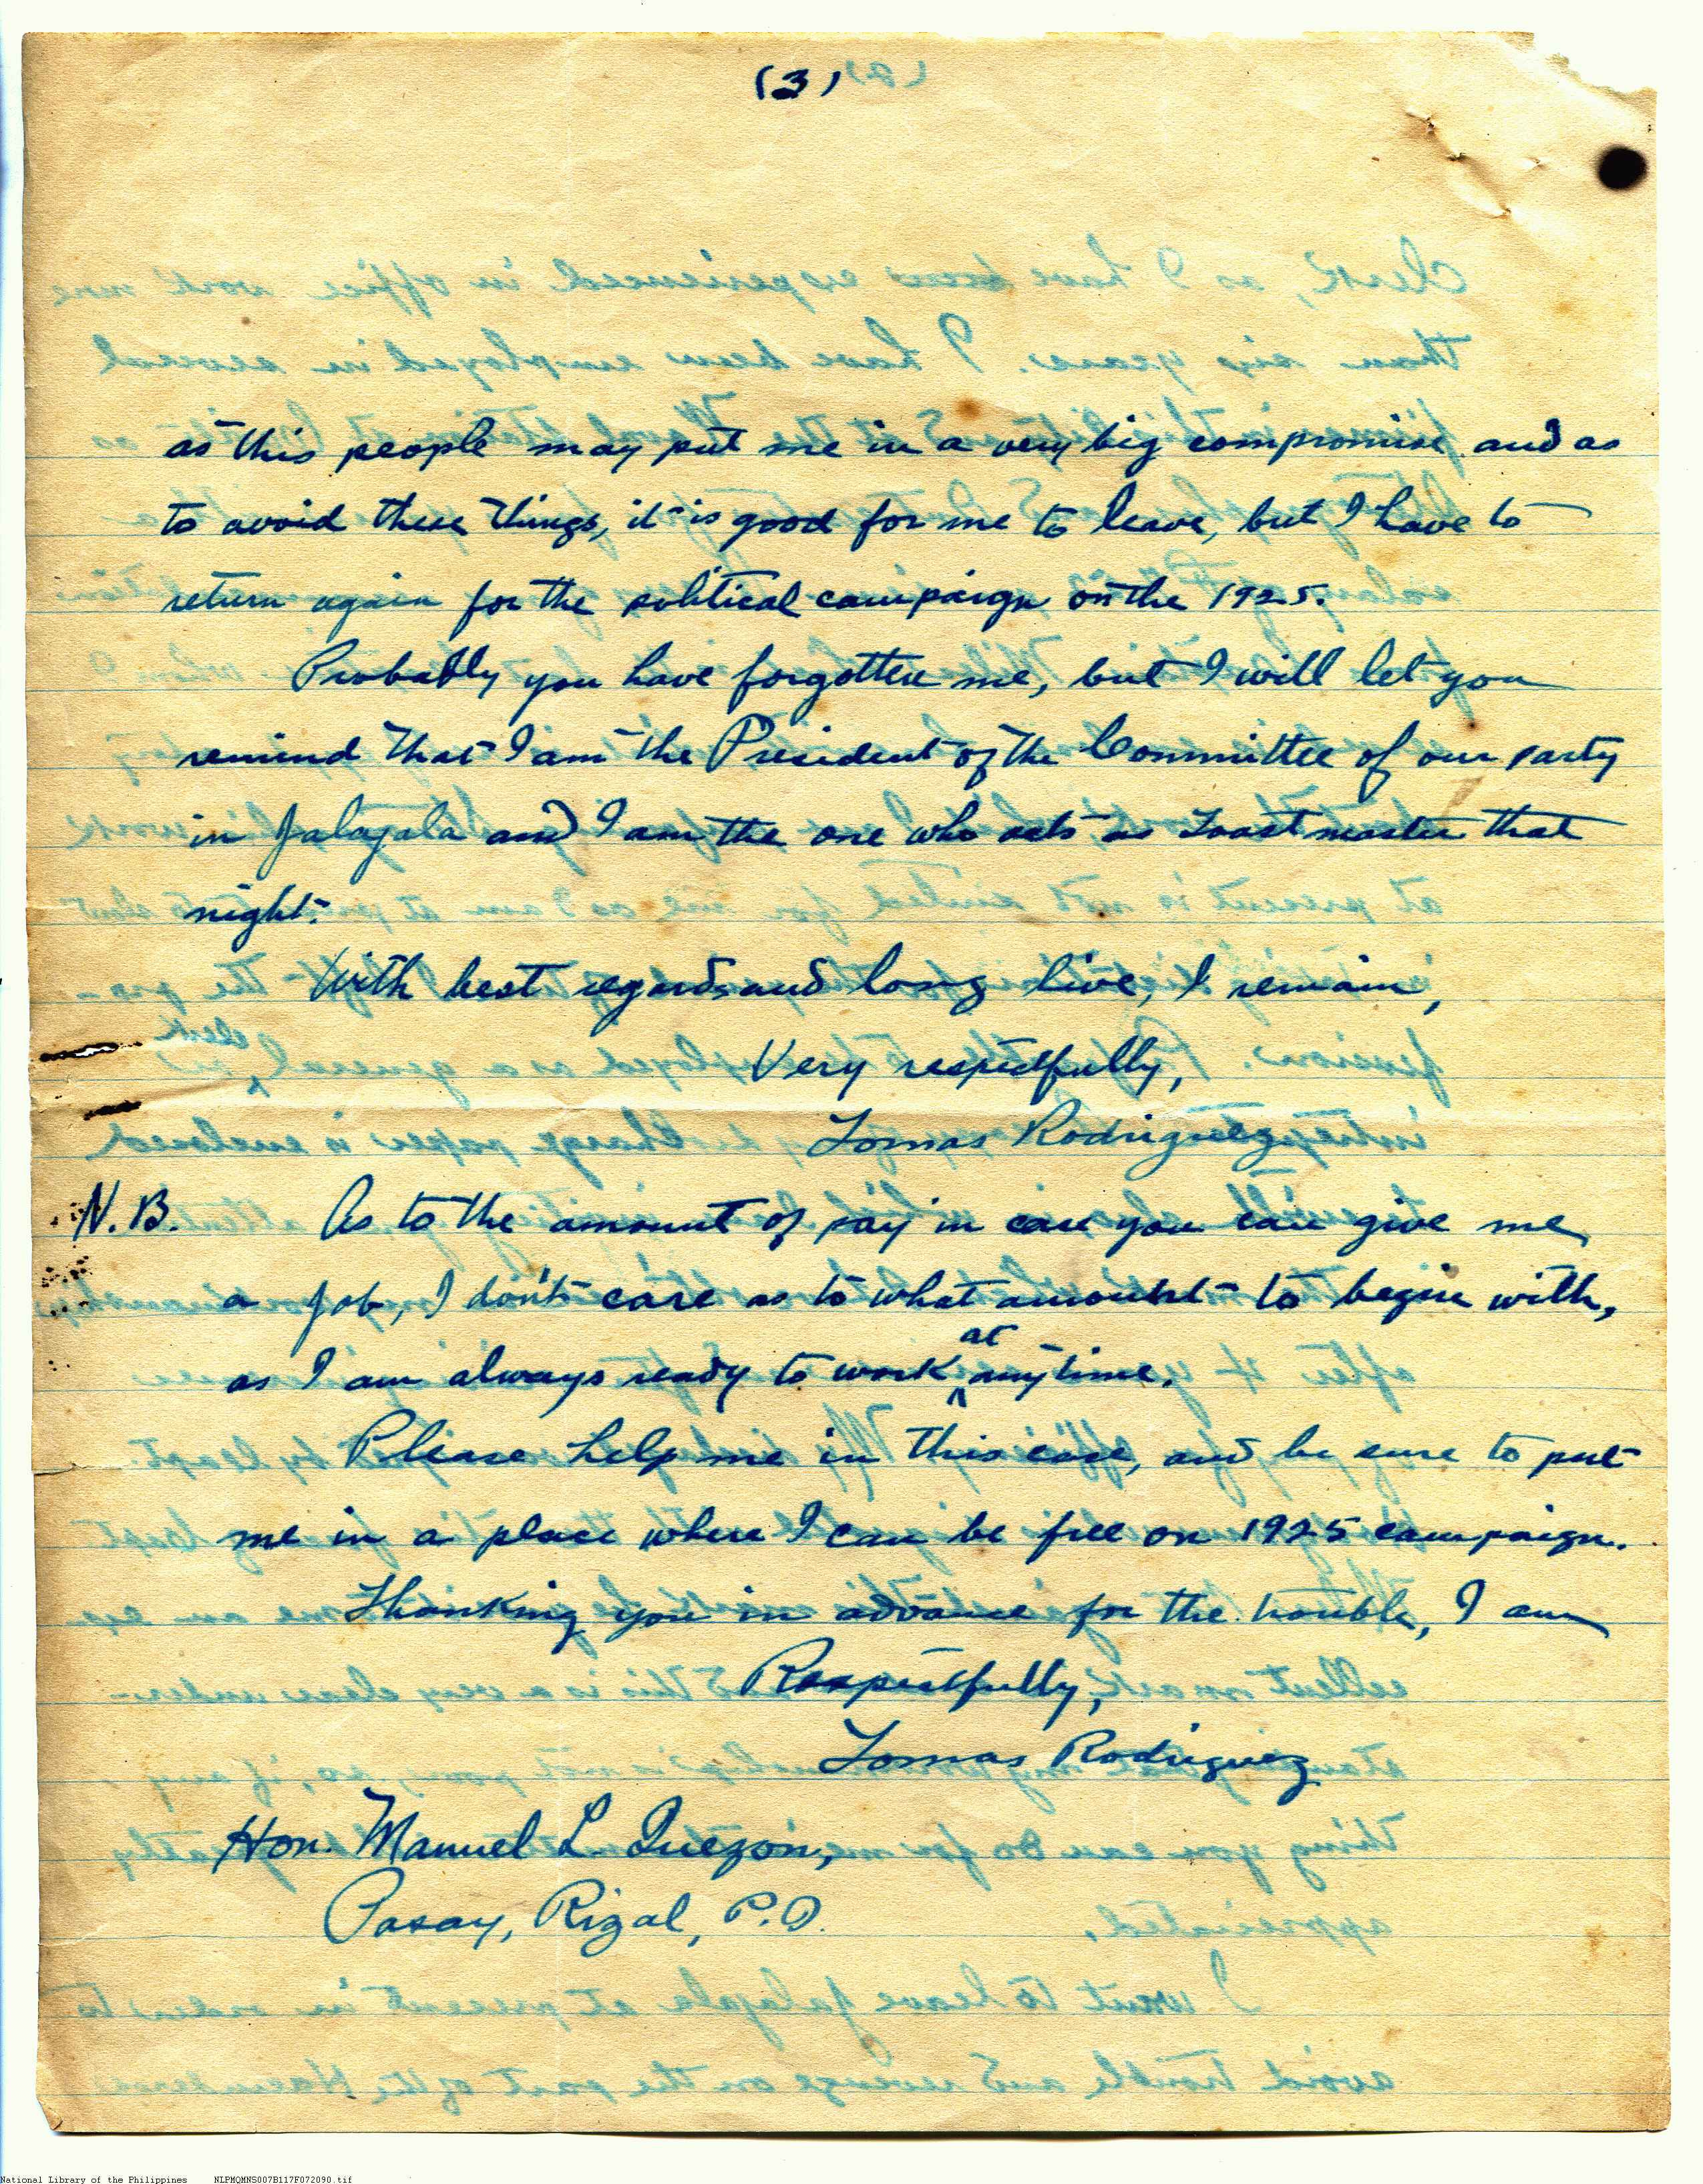 (3)
as this people may put me in a very big compromise and as
to avoid these things, it is good for me to leave, but I have to
return again for the political campaign on the 1925.
Probably you have forgotten me, but I will let you
remind that I am the President of the Committee of our party
in Jalajala and I am the one who acts as Toastmaster that
night.
With best regards and long live, I remain,
Very respectfully,
Tomas Rodriguez
N.B. As to the amount of pay in case you can give me
a job, I don't care as to what amount to begin with,
as I am always ready to work at anytime.
Please help me in this case, and be sure to put
me in a place where I can be free on 1925 campaign.
Thanking you in advance for the trouble, I am
Respectfully,
Tomas Rodriguez
Hon. Manuel L. Quezon,
Pasay, Rizal, P.I.
National Library of the Philippines NLPMQMNS007B117F072090.tif